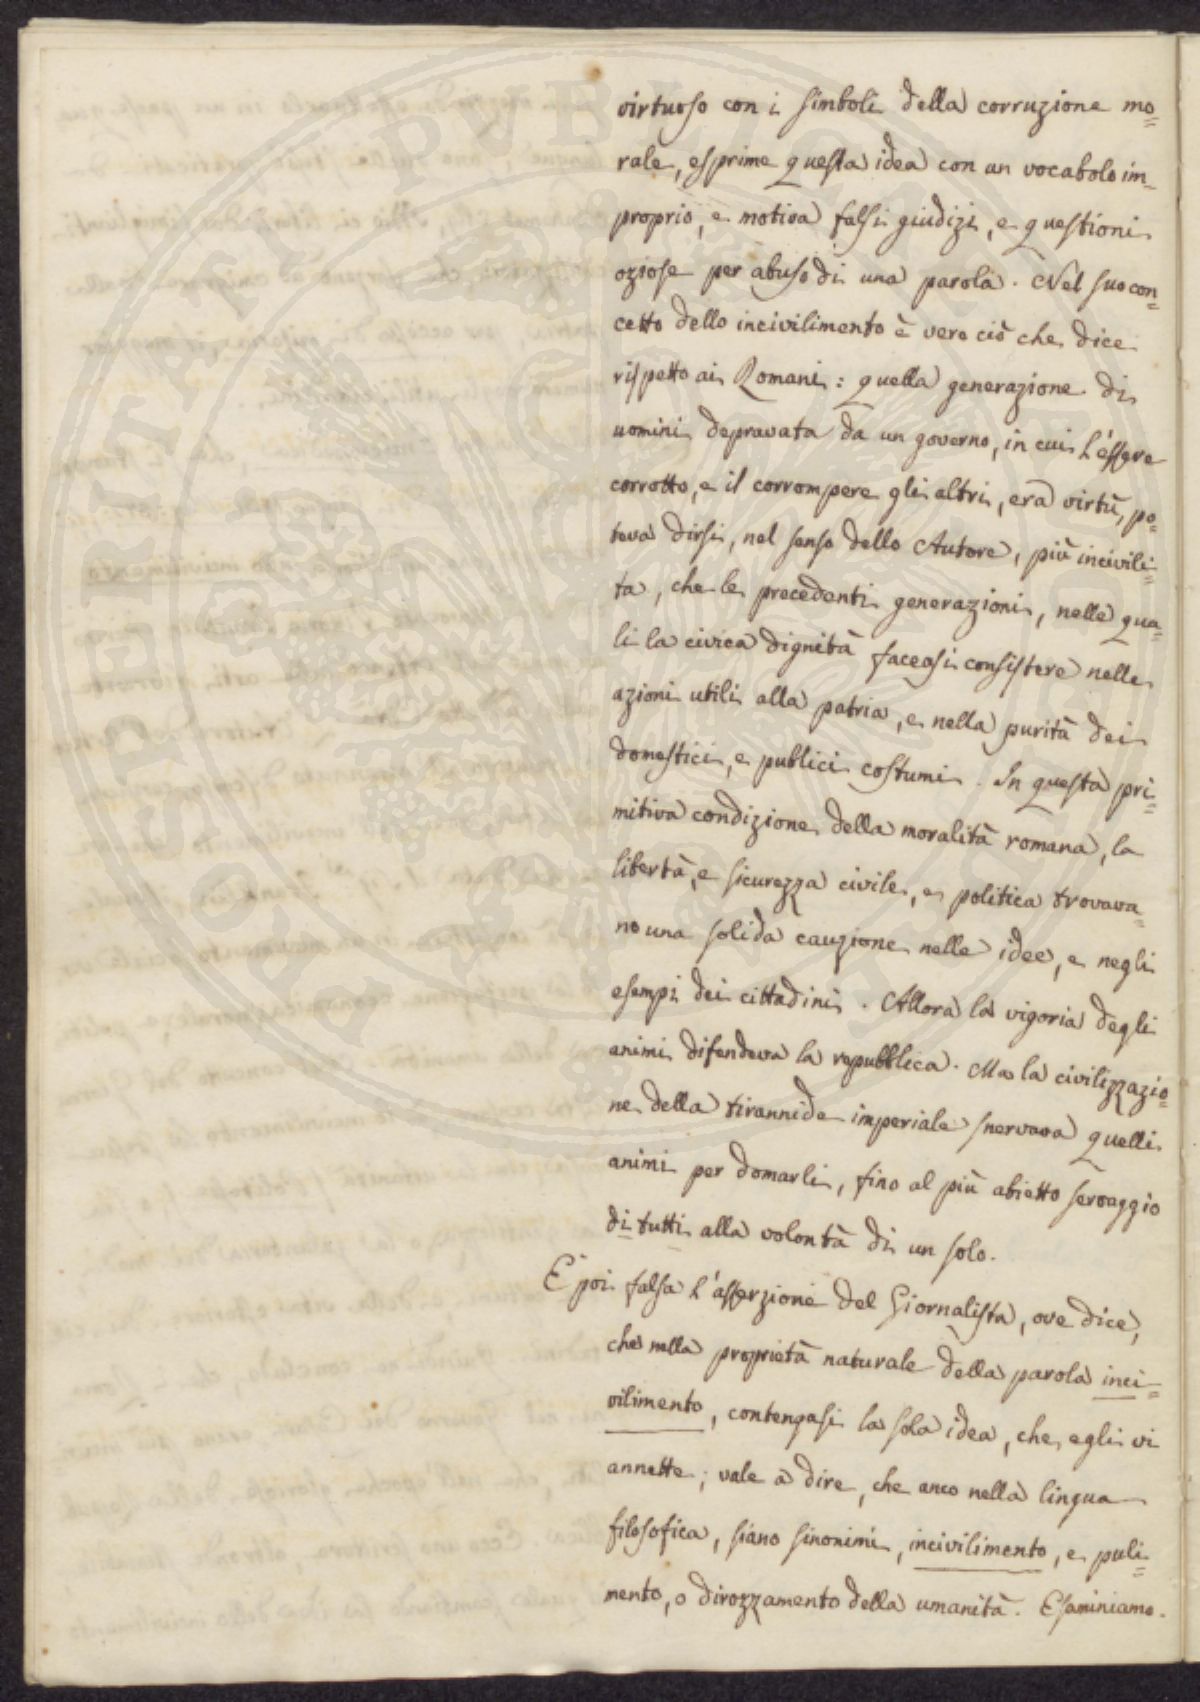 virtuoso con i simboli della corruzione mo=
rale, esprime questa idea con un vocabolo im=
proprio, e motiva falsi giudizi, e questioni
oziose per abuso di una parola. Nel suo con=
cetto dello incivilimento è vero ciò che dice
rispetto ai Romani: quella generazione di
uomini depravata da un governo, in cui l'essere
corrotto, e il corrompere gli altri, era virtù, po=
teva dirsi, nel senso dello Autore, più incivili=
ta, che le precedenti generazioni, nelle qua=
li la civica dignità faceasi consistere nelle
azioni utili alla patria, e nella purità dei
domestici, e publici costumi. In questa pri=
mitiva condizione della moralità romana, la
libertà, e sicurezza civile, e politica trovava=
no una solida cauzione nelle idee, e negli
esempi dei cittadini. Allora la vigoria degli
animi difendeva la repubblica. Ma la civilizzazio=
ne della tirannide imperiale snervava quelli
animi per domarli, fino al più abietto servaggio
di tutti alla volontà di un solo.
È poi falsa l'asserzione del Giornalista, ove dice,
che nella proprietà naturale della parola inci=
vilimento, contengasi la sola idea, che egli vi
annette; vale a dire, che anco nella lingua
filosofica, siano sinonimi, incivilimento, e puli=
mento, o dirozzamento della umanità. Esaminiamo.